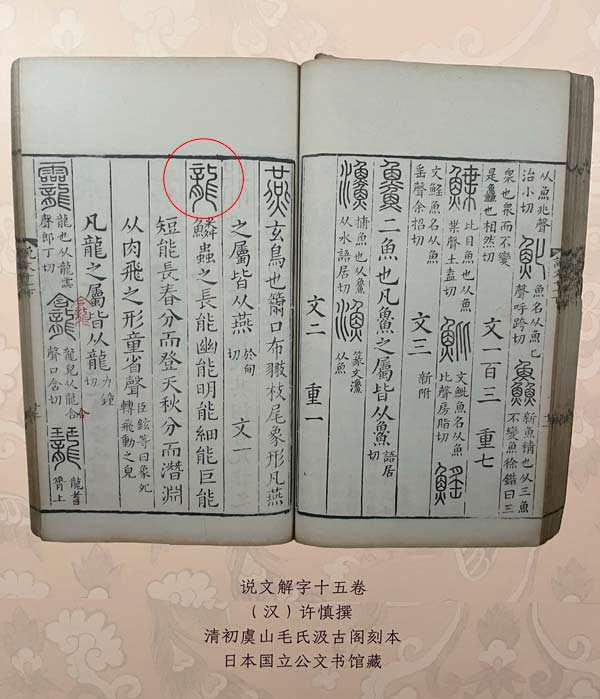 从魚兆聲治小切 魤 魚名从魚匕聲呼跨切 鱻 新魚精也从三魚不變魚徐鍇曰三
衆也衆而不變是鱻也相然切 文一百三 重七
鰈 比目魚也从魚枼聲土盍切 魮 文魮魚名从魚比聲房脂切 鰩
文鰩魚名从魚䍃聲余招切 文三 新附
𩺰 二魚也凡𩺰之屬皆从𩺰 語居切
𤅀 捕魚也从𩺰从水語居切 漁 篆文𤅀从魚
文二 重一
燕 玄鳥也籋口布翄枝尾象形凡燕
之屬皆从燕 於甸切 文一
龍 鱗蟲之長能幽能明能細能巨能
短能長春分而登天秋分而潛淵
从肉飛之形童省聲 臣鉉等曰象夗轉飛動之皃
凡龍之屬皆从龍 力鐘切
龗 龍也从龍霝聲郎丁切 龕 龍皃从龍合聲口含切 𪚑 龍耆脊上
说文解字十五卷
（汉）许慎撰
清初虞山毛氏汲古阁刻本
日本国立公文书馆藏